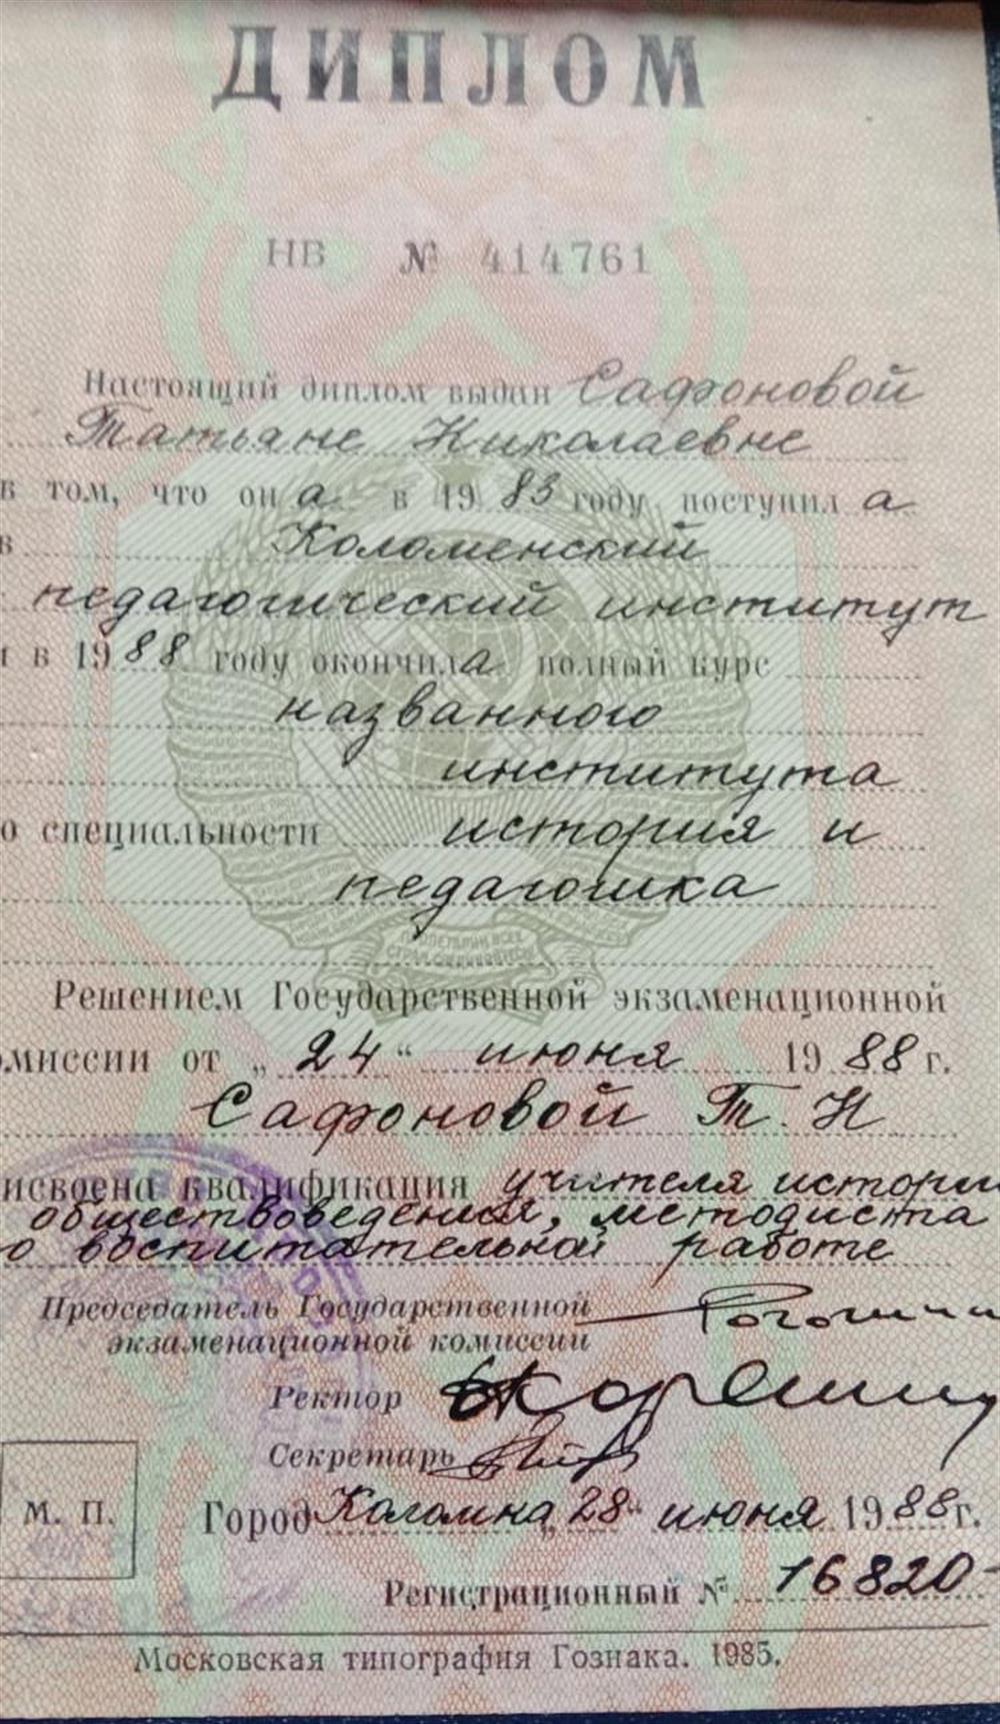 ДИПЛОМ
НВ № 414761
Настоящий диплом выдан Сафоновой
Татьяне Николаевне
в том, что он а в 19 83 году поступил а
в Коломенский
педагогический институт
и в 19 88 году окончил а полный курс
названного
института
о специальности история и
педагогика
Решением Государственной экзаменационной
омиссии от „ 24 “ июня 19 88 г.
Сафоновой Т. Н
исвоена квалификация учителя истории
обществоведения, методиста
о воспитательной работе
Председатель Государственной
экзаменационной комиссии
Ректор
Секретарь
М. П. Город Коломна „ 28 “ июня 19 88 г.
Регистрационный № 16820
Московская типография Гознака. 1985.